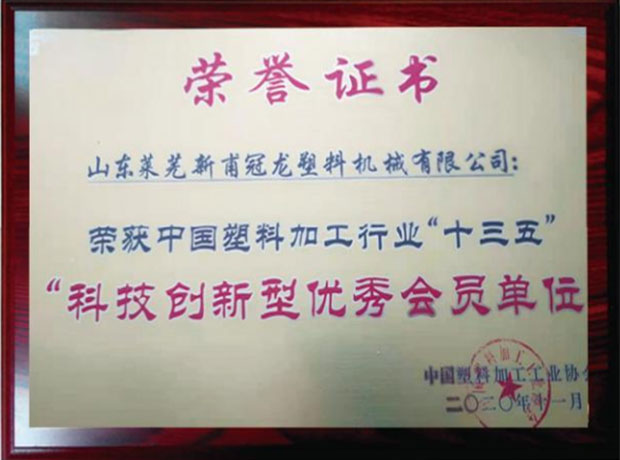 荣誉证书
山东莱芜新甫冠龙塑料机械有限公司:
荣获中国塑料加工行业“十三五”
“科技创新型优秀会员单位
中国塑料加工工业协会
二〇二〇年十一月